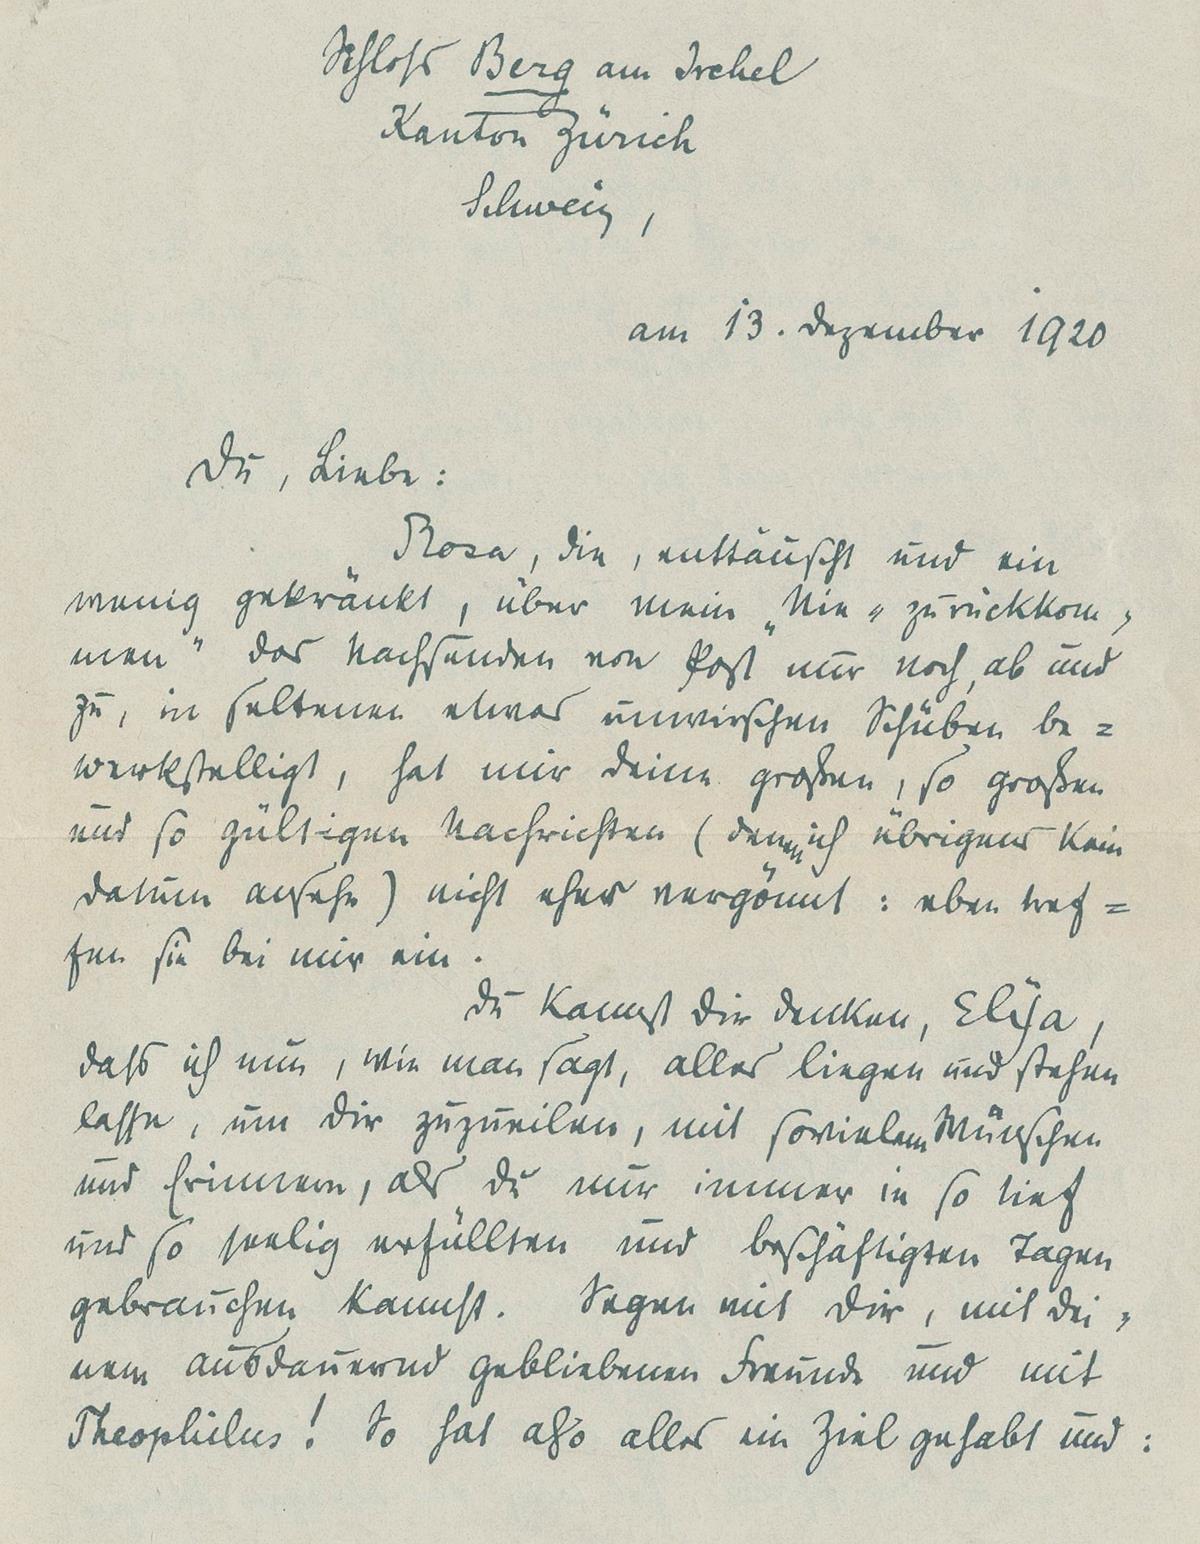 Schloss Berg am Irchel
Kanton Zürich
Schweiz,
am 13. Dezember 1920
Du, Liebe:
Rosa, die, enttäuscht und ein
wenig gekränkt, über mein „Nie = zurückkom =
men" das Nachsenden von Post nur noch, ab und
zu, in seltenen etwas unwirschen Schüben be =
werkstelligt, hat mir Deine großen, so großen
und so gültigen Nachrichten (denen ich übrigens kein
Datum ansehe) nicht eher vergönnt: eben tref =
fen sie bei mir ein.
Du kannst Dir denken, Elija,
dass ich nun, wie man sagt, alles liegen und stehen
lasse, um Dir zuzueilen, mit sovielem Wünschen
und Erinnern, als Du nur immer in so tief
und so seelig erfüllten und beschäftigten Tagen
gebrauchen kannst. Segen mit Dir, mit Dei =
nem ausdauernd gebliebenen Freunde und mit
Theophilus! So hat also alles ein Ziel gehabt und: